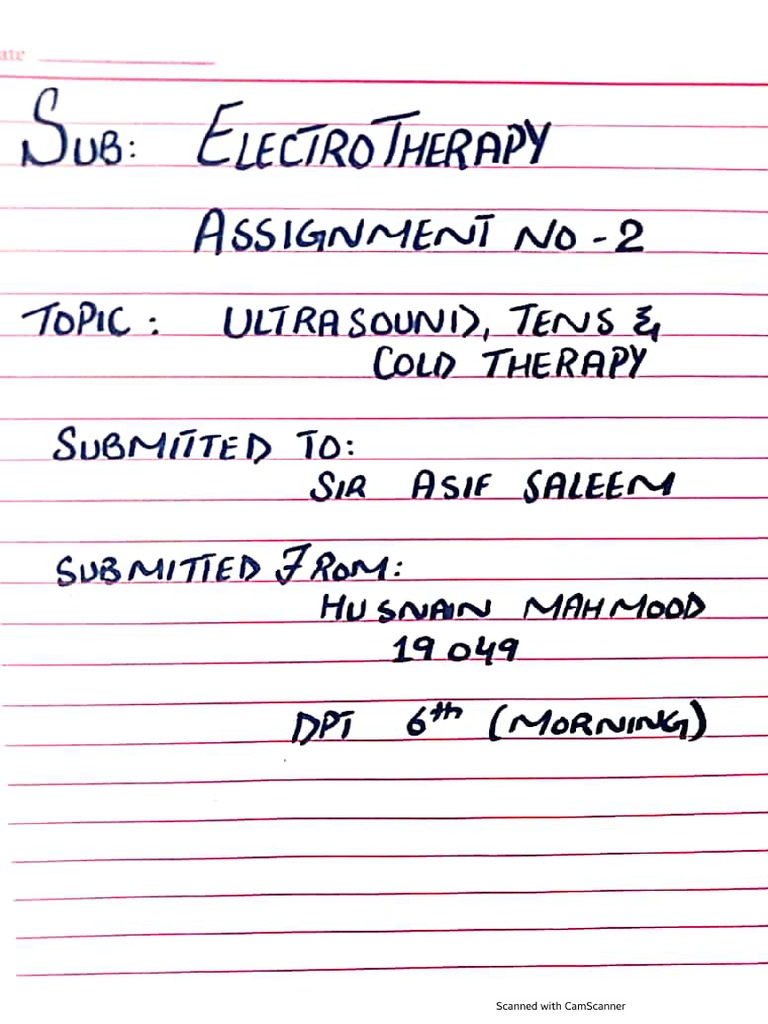 ate
SUB: ELECTROTHERAPY
ASSIGNMENT NO - 2
TOPIC: ULTRASOUND, TENS &
COLD THERAPY
SUBMITTED TO:
SIR ASIF SALEEM
SUBMITTED FROM:
HUSNAIN MAHMOOD
19049
DPT 6th (MORNING)
Scanned with CamScanner